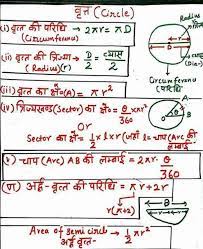 वृत्त (Circle)
(i) वृत्त की परिधि → 2πr = πD
(Circumference)
(ii) वृत्त की त्रिज्या → D/2 = व्यास/2
(Radius)(r)
(iii) वृत्त का क्षे० = A = πr²
(iv) त्रिज्यखण्ड (Sector) का क्षे० = θ/360 × πr²
Or
Sector का क्षे० = 1/2 × l × r (जहाँ l = चाप (Arc) की लम्बाई)
(v) चाप (Arc) AB की लम्बाई = 2πr · θ/360
(vi) अर्द्ध-वृत्त की परिधि = πr + 2r
r(π+2)
Area of semi circle → 1/2 πr²
अर्द्ध-वृत्त
Radius
त्रिज्या
Circumference
परिधि
θ
A
B
θ